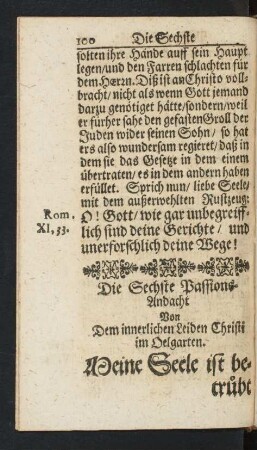 100 Die Sechste
solten ihre Hände auff sein Haupt
legen/und den Farren schlachten für
dem HErrn. Diß ist an Christo voll-
bracht/nicht als wenn Gott jemand
darzu genötiget hätte/sondern/weil
er fürher sahe den gefasten Groll der
Juden wider seinen Sohn/ so hat
ers also wundersam regieret/ daß in
dem sie das Gesetze in dem einem
übertraten/ es in dem andern haben
erfüllet. Sprich nun/ liebe Seele/
mit dem außerwehlten Rustzeug:
Rom.
XI, 33.
O! Gott/ wie gar unbegreiff-
lich sind deine Gerichte/ und
unerforschlich deine Wege!
Die Sechste Passions-
Andacht
Von
Dem innerlichen Leiden Christi
im Oelgarten.
Meine Seele ist be-
trübt